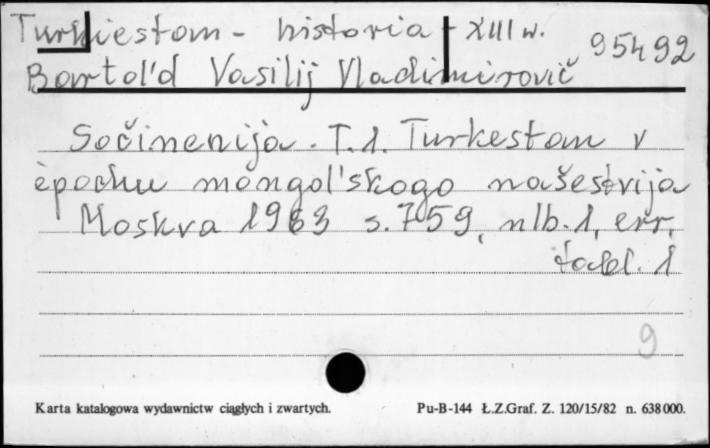 Turkiestan - historia - XIII w.
95492
Bartol'd Vasilij Vladimirovič
Sočinenija. T.1. Turkestan v
èpochu mongol'skogo našestvija
Moskva 1963 s. 759, nlb. 1, err,
tabl. 1
9
Karta katalogowa wydawnictw ciągłych i zwartych.
Pu-B-144 Ł.Z.Graf. Z. 120/15/82 n. 638000.